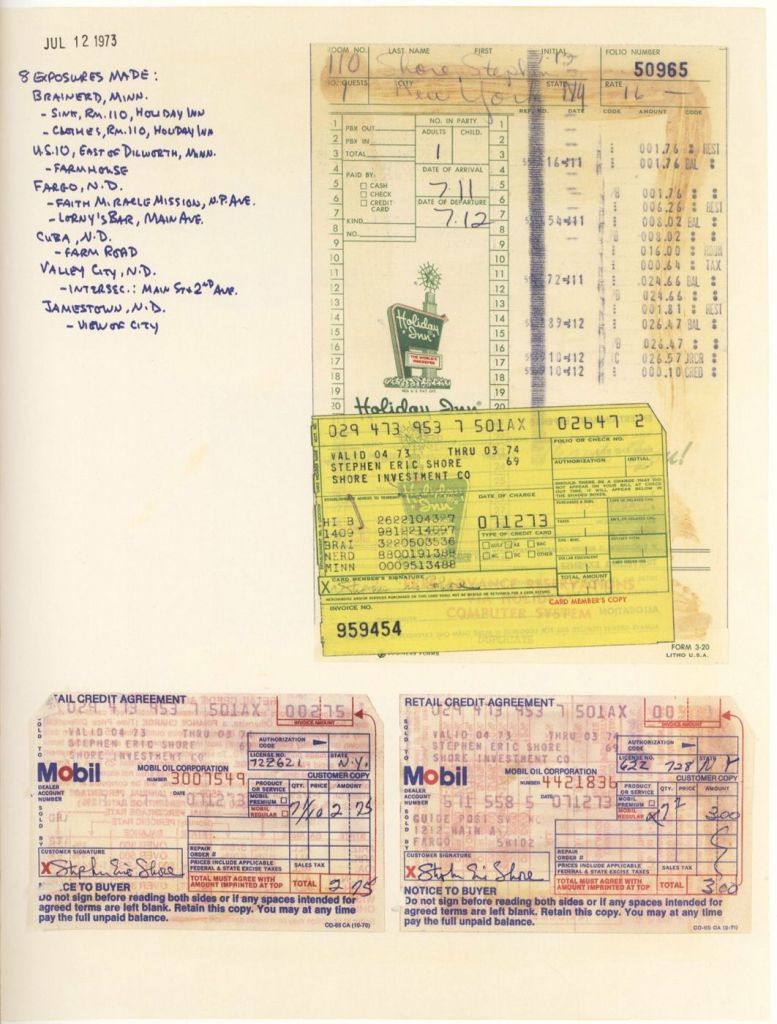 JUL 12 1973
8 EXPOSURES MADE:
BRAINERD, MINN.
- SINK, RM. 110, HOLIDAY INN
- CLOTHES, RM. 110, HOLIDAY INN
U.S. 10, EAST OF DILWORTH, MINN.
- FARMHOUSE
FARGO, N.D.
- FAITH MIRACLE MISSION, N.P. AVE.
- LORNY'S BAR, MAIN AVE.
CUBA, N.D.
- FARM ROAD
VALLEY CITY, N.D.
- INTERSEC.: MAIN ST + 2ND AVE.
JAMESTOWN, N.D.
- VIEW OF CITY
ROOM NO. LAST NAME FIRST INITIAL FOLIO NUMBER
110 Shore Stephen 50965
GUESTS CITY STATE RATE
1 New York NY 16 —
REF. NO. DATE CODE AMOUNT CODE
NO. IN PARTY
PBX OUT ADULTS CHILD.
PBX IN
TOTAL 1
DATE OF ARRIVAL
PAID BY: 7.11
CASH
CHECK DATE OF DEPARTURE
CREDIT CARD 7.12
KIND
NO.
1
2
3
4
5
6
7
8
9
10
11
12
13
14
15
16
17
18
19
20
001.76 REST
001.76 BAL
001.76
006.26 REST
008.02 BAL
008.02
016.00 ROOM
000.64 TAX
024.66 BAL
024.66
001.81 REST
026.47 BAL
026.47
026.57
000.10 CRED
Holiday Inn
Holiday Inn
029 473 953 7 501AX 02647 2
VALID 04 73 THRU 03 74
STEPHEN ERIC SHORE 69
SHORE INVESTMENT CO
FOLIO OR CHECK NO.
AUTHORIZATION INITIAL
DATE OF CHARGE
071273
TYPE OF CREDIT CARD
HI B 2622104327
1409 9812214697
BRAI 3220503536
NERD 8800191388
MINN 0009513488
TOTAL AMOUNT
CARD MEMBER'S SIGNATURE
X
CARD MEMBER'S COPY
ADVANCE RESERVATIONS
COMPUTER SYSTEM
INVOICE NO.
959454
FORM 3-20
LITHO U.S.A.
AIL CREDIT AGREEMENT
029 473 953 7 501AX 00275
INVOICE AMOUNT
VALID 04 73 THRU 03 74
STEPHEN ERIC SHORE 69
SHORE INVESTMENT CO
AUTHORIZATION CODE
LICENSE NO. STATE
728621 N.Y.
SOLD TO
Mobil
MOBIL OIL CORPORATION CUSTOMER COPY
NUMBER 3007549
DEALER ACCOUNT NUMBER
DATE 071273
PRODUCT OR SERVICE QTY. PRICE AMOUNT
MOBIL PREMIUM
MOBIL REGULAR 7 2 75
SOLD BY
REPAIR ORDER #
CUSTOMER SIGNATURE
X Stephen Eric Shore
PRICES INCLUDE APPLICABLE FEDERAL & STATE EXCISE TAXES SALES TAX
TOTAL MUST AGREE WITH AMOUNT IMPRINTED AT TOP TOTAL 2 75
CE TO BUYER
Do not sign before reading both sides or if any spaces intended for
agreed terms are left blank. Retain this copy. You may at any time
pay the full unpaid balance.
CO-65 CA (10-70)
RETAIL CREDIT AGREEMENT
029 473 953 7 501AX
INVOICE AMOUNT
VALID 04 73 THRU 03 74
STEPHEN ERIC SHORE 69
SHORE INVESTMENT CO
AUTHORIZATION CODE
LICENSE NO. STATE
622 728 NY
SOLD TO
Mobil
MOBIL OIL CORPORATION CUSTOMER COPY
NUMBER 4421836
DEALER ACCOUNT NUMBER
611 558 5 DATE 071273
GUIDE POST SV NC
1212 MAIN A
FARGO 58102
PRODUCT OR SERVICE QTY. PRICE AMOUNT
MOBIL PREMIUM
MOBIL REGULAR 3.00
SOLD BY
REPAIR ORDER #
CUSTOMER SIGNATURE
X Stephen Eric Shore
PRICES INCLUDE APPLICABLE FEDERAL & STATE EXCISE TAXES SALES TAX
TOTAL MUST AGREE WITH AMOUNT IMPRINTED AT TOP TOTAL 3.00
NOTICE TO BUYER
Do not sign before reading both sides or if any spaces intended for
agreed terms are left blank. Retain this copy. You may at any time
pay the full unpaid balance.